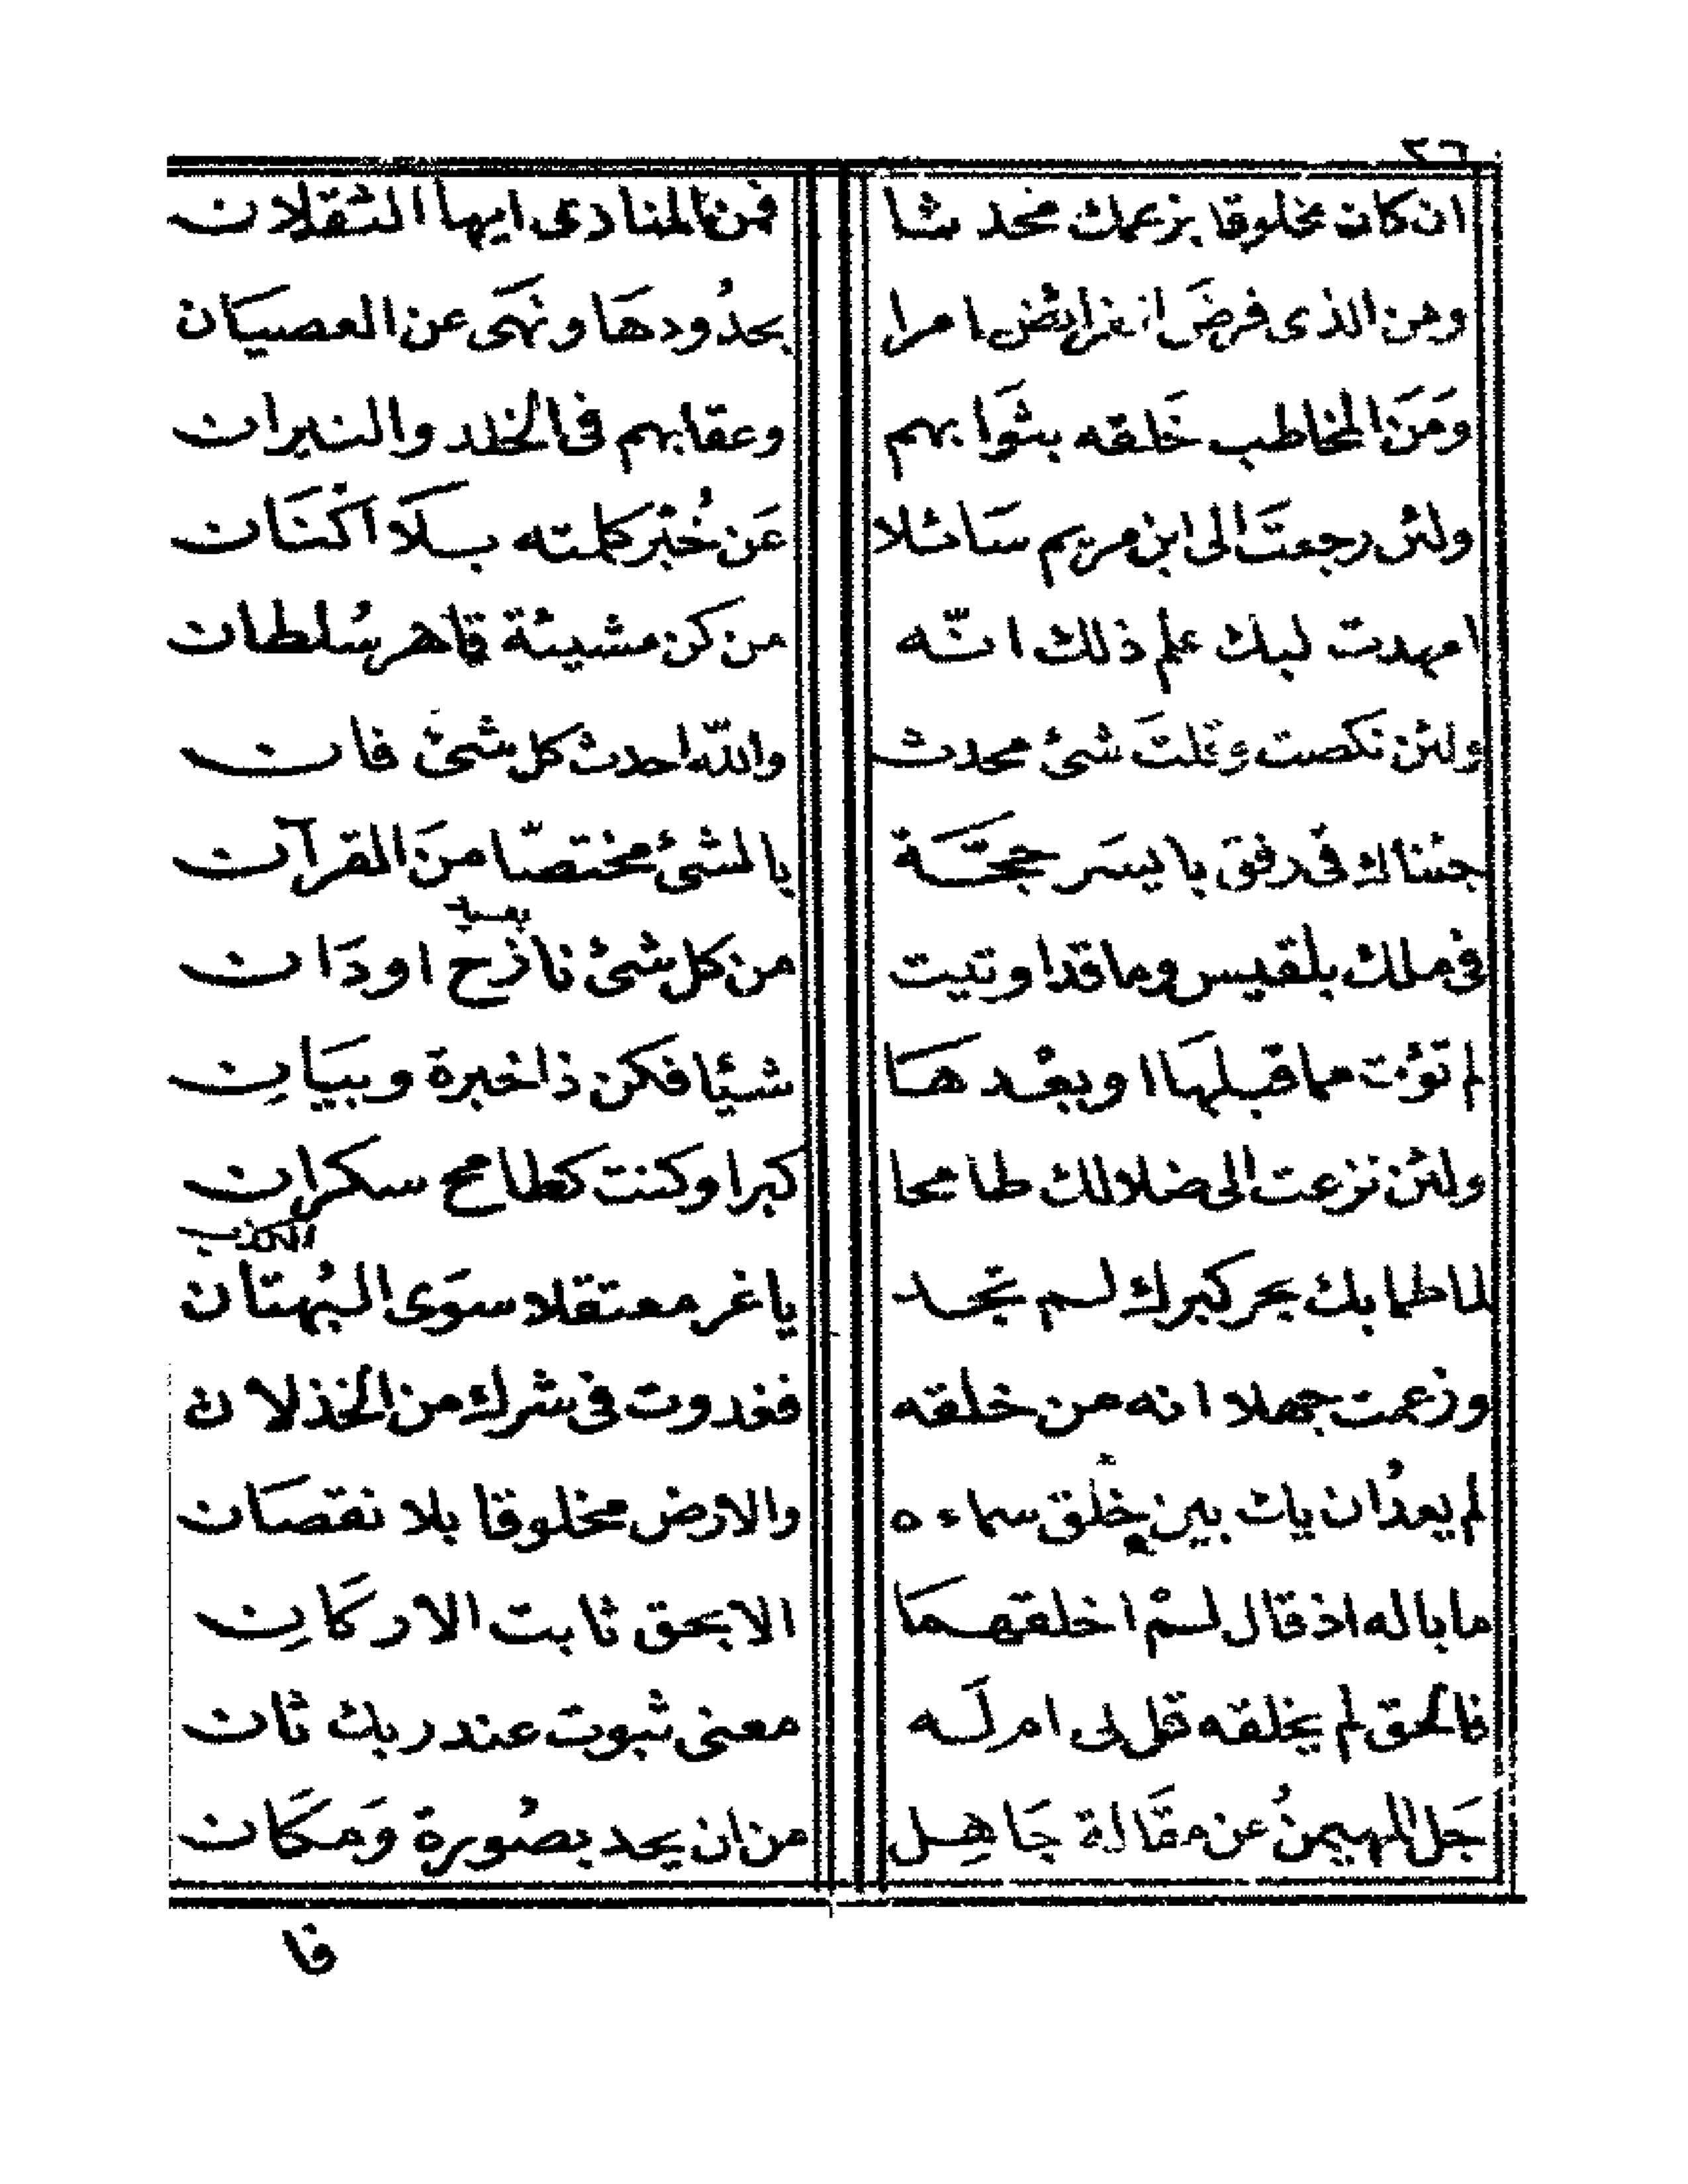 ٢٦
ان كان مخلوقا بزعمك محدثا فمن المنادى ايها الثقلان
ومن الذى فرضَ الفرائض امرا بحدُودهَا ونهَى عن العصيَان
وَمَنَ المخاطب خَلقه بثوَابهم وعقابهم فى الخلد والنيران
ولئن رجعتَ الى ابن مريم سَائلا عَن خُبْر كلمته بلَا اكْنَان
امهدت لبك علم ذلك انّه من كن مشيئة قاهر سُلطان
ولئن نكصت وقلتَ شئ محدث والله احدث كل شئ فان
جئناك فى رفق بايسَر حجَّة بالشئ مختصّا منَ القرآن
فى ملك بلقيس وما قد اوتيت من كل شئ نازح اودَان
بعيد
لم تؤت مما قبلهَا او بعْدهَا شيئا فكن ذا خبرة وبيَانِ
ولئن نزعت الى ضلالك طامحا كبرا وكنت كطامح سكران
لما طما بك بحر كبرك لم تجد يا غر معتقلا سوَى البُهتان
الكذب
وزعمت جهلا انه من خلقه فغدوت فى شرك من الخذلان
لم يعدُ ان يك بين خلْق سماءه والارض مخلوقا بلا نقصَان
ما باله اذ قال لمْ اخلقهمَا الا بحق ثابت الاركَانِ
فالحق لم يخلقه قل لى ام لَه معنى ثبوت عند ربك ثان
جَل المهيمنُ عن مقَالة جَاهِل من ان يحد بصُورة وَمكَان
فا